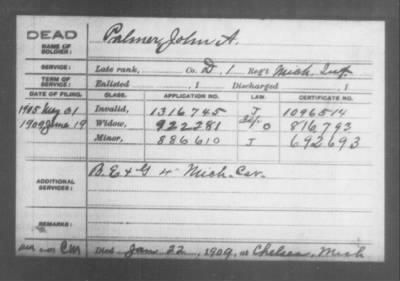 DEAD
NAME OF SOLDIER: Palmer, John A.
SERVICE: Late rank, Co. D, 1 Reg't Mich. Inf.
TERM OF SERVICE: Enlisted , 1 Discharged , 1
DATE OF FILING. CLASS. APPLICATION NO. LAW. CERTIFICATE NO.
1905 May 31 Invalid, 1316745 J 1096514
1909 June 19 Widow, 922281 O 816793
Minor, 886610 J 692693
ADDITIONAL SERVICES: B. E & G 4 Mich. Cav.
REMARKS:
CM Died Jan 22, 1909, at Chelsea, Mich